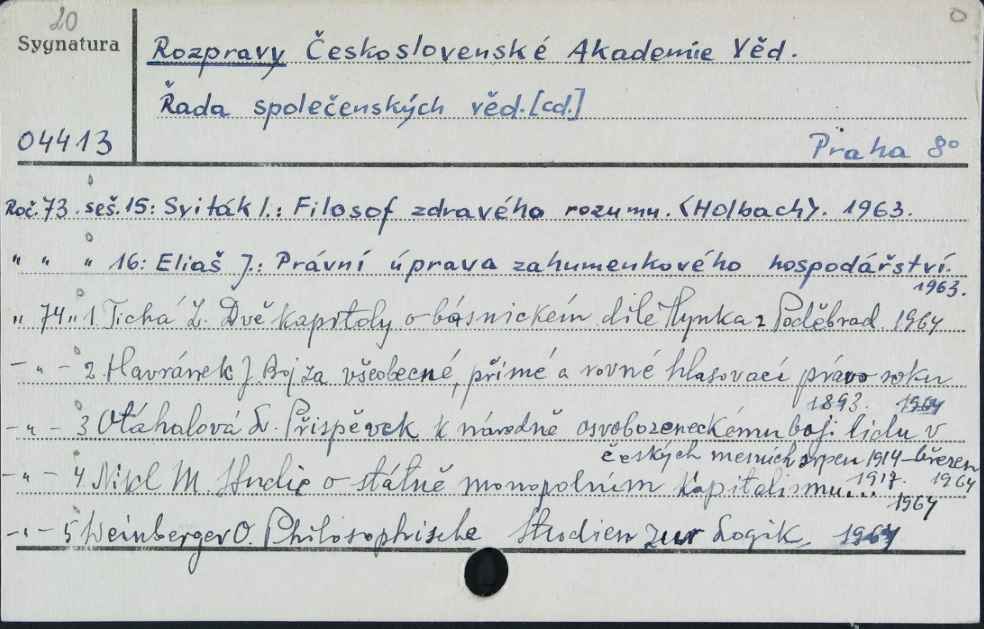 20
Sygnatura
04413
Rozpravy Československé Akademie Věd.
Řada společenských věd. [cd.]
Praha 8°
Roč. 73. seš. 15: Sviták I.: Filosof zdravého rozumu. (Holbach). 1963.
" " " 16: Eliaš J.: Právní úprava zahumenkového hospodářství.
1963.
" 74 " 1 Tichá Z. Dvě kapitoly o básnickém díle Hynka z Poděbrad 1964
- " - 2 Havránek J. Boj za všeobecné, přímé a rovné hlasovací právo roku
1893. 1964
- " - 3 Otáhalová L. Příspěvek k národně osvobozeneckému boji lidu v
českých zemích srpen 1914 - březen
1917. 1964
- " - 4 Nikl M. Studie o státně monopolním kapitalismu...
1964
- " - 5 Weinberger O. Philosophische Studien zur Logik, 1964